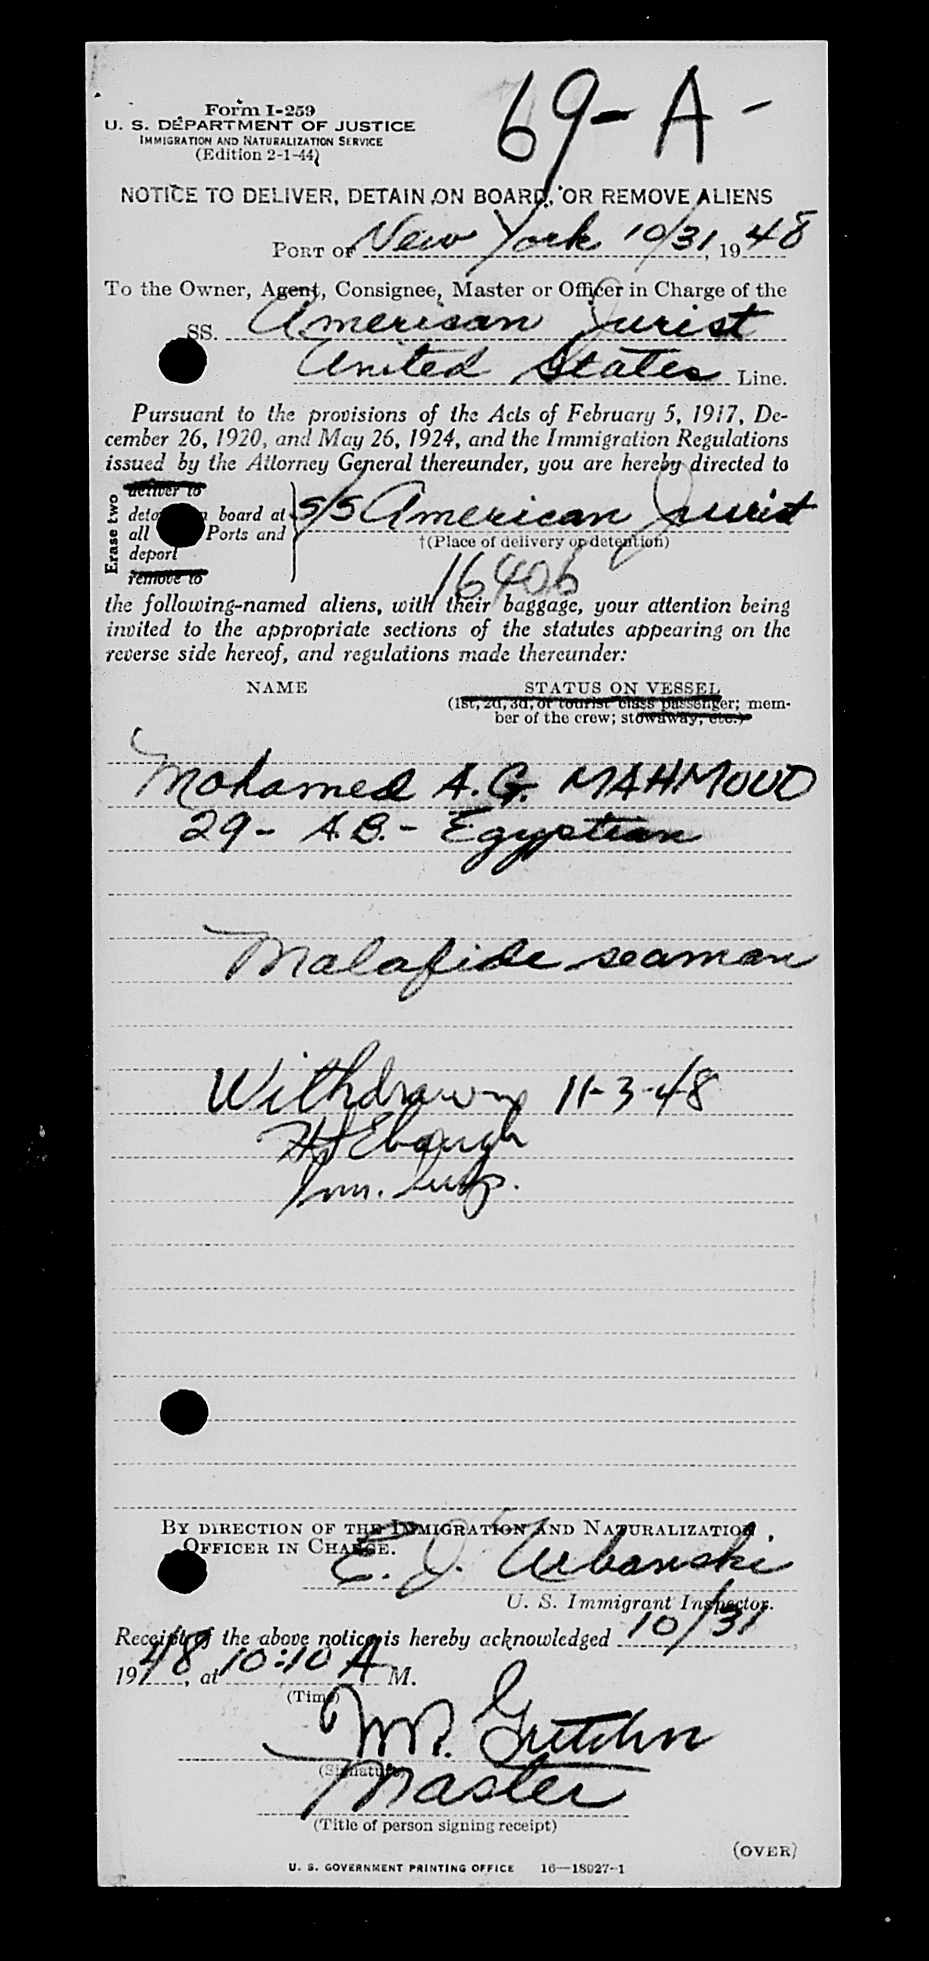 69-A-
Form I-259
U. S. DEPARTMENT OF JUSTICE
IMMIGRATION AND NATURALIZATION SERVICE
(Edition 2-1-44)
NOTICE TO DELIVER, DETAIN ON BOARD, OR REMOVE ALIENS
PORT OF New York 10/31, 1948
To the Owner, Agent, Consignee, Master or Officer in Charge of the
SS. American Jurist
United States Line.
Pursuant to the provisions of the Acts of February 5, 1917, De-
cember 26, 1920, and May 26, 1924, and the Immigration Regulations
issued by the Attorney General thereunder, you are hereby directed to
Erase two
deliver to
board at
all Ports and
deport
remove to
S/S American Jurist
†(Place of delivery or detention)
16406
the following-named aliens, with their baggage, your attention being
invited to the appropriate sections of the statutes appearing on the
reverse side hereof, and regulations made thereunder:
NAME STATUS ON VESSEL
(1st, 2d, 3d, or tourist class passenger; mem-
ber of the crew; stowaway, etc.)
Mohamed A.G. MAHMOUD
29- A.B.- Egyptian
Malafide seaman
Withdrawn 11-3-48
Ebaugh
Imm. Insp.
BY DIRECTION OF THE IMMIGRATION AND NATURALIZATION
OFFICER IN CHARGE.
E. J. Urbanski
U. S. Immigrant Inspector.
Receipt of the above notice is hereby acknowledged 10/31,
1948, at 10:10 A M.
(Time)
(Signature)
Master
(Title of person signing receipt)
(OVER)
U. S. GOVERNMENT PRINTING OFFICE 16—18027-1